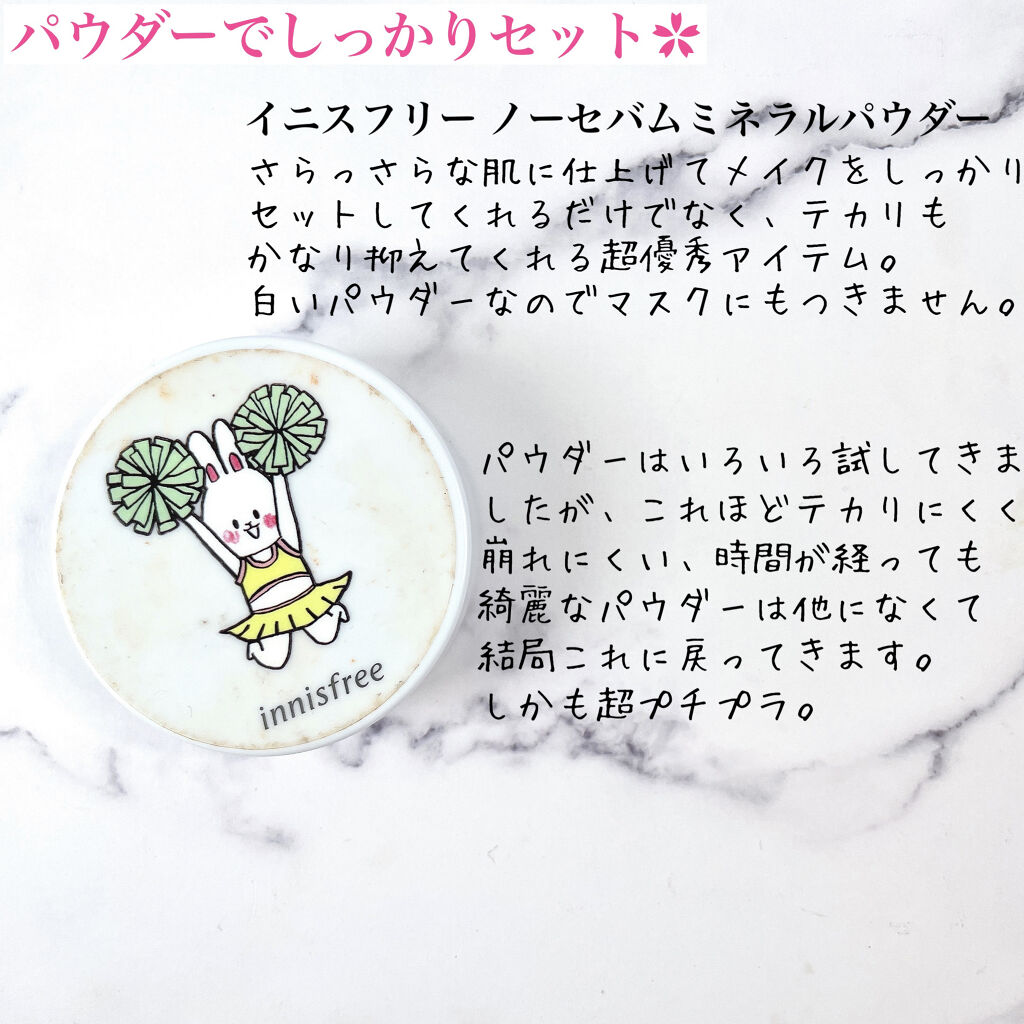 パウダーでしっかりセット✿
イニスフリー ノーセバムミネラルパウダー
さらっさらな肌に仕上げてメイクをしっかり
セットしてくれるだけでなく、テカリも
かなり抑えてくれる超優秀アイテム。
白いパウダーなのでマスクにもつきません。
パウダーはいろいろ試してきま
したが、これほどテカリにくく
崩れにくい、時間が経っても
綺麗なパウダーは他になくて
結局これに戻ってきます。
しかも超プチプラ。
innisfree